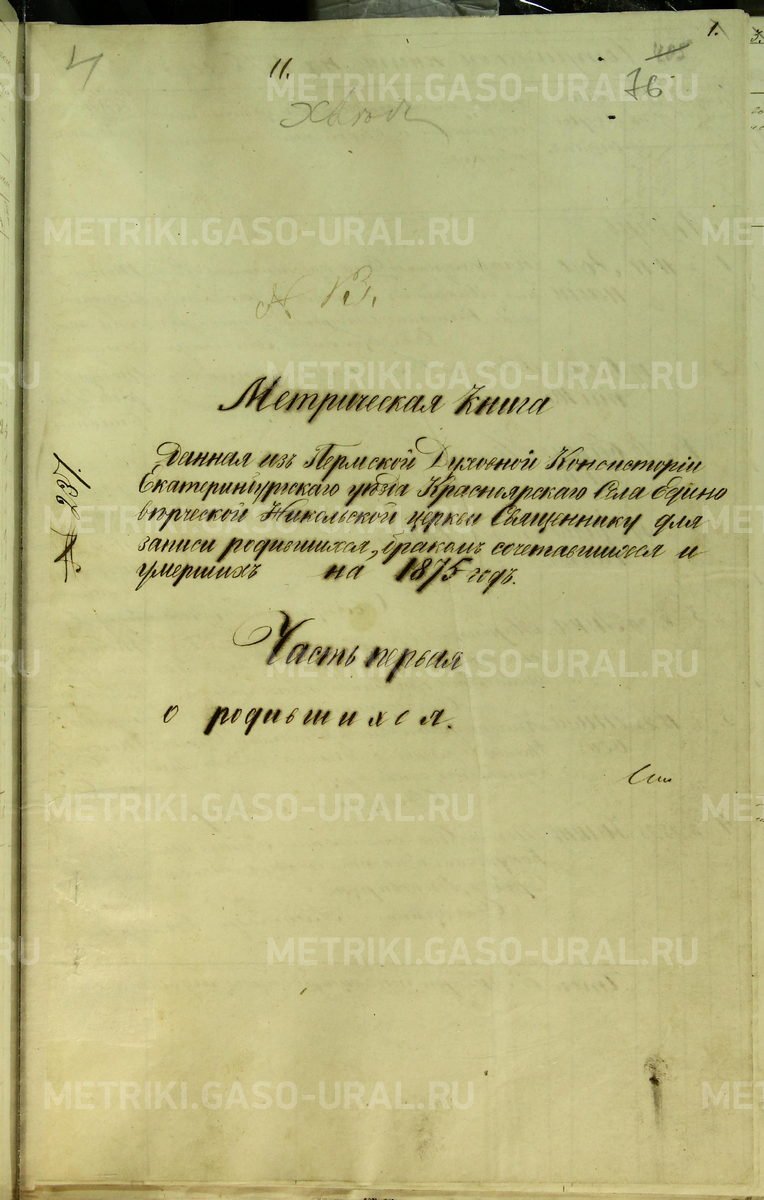 1.
4
11.
76
N 13.
Метрическая книга
Данная изъ Пермской Духовной Консисторіи
Екатеринбургскаго уѣзда Красноярскаго Села Едино
вѣрческой Никольской церкви Священнику для
записи родившихся, бракомъ сочетавшихся и
умершихъ на 1875 годъ.
Часть первая
о родившихся.
METRIKI.GASO-URAL.RU